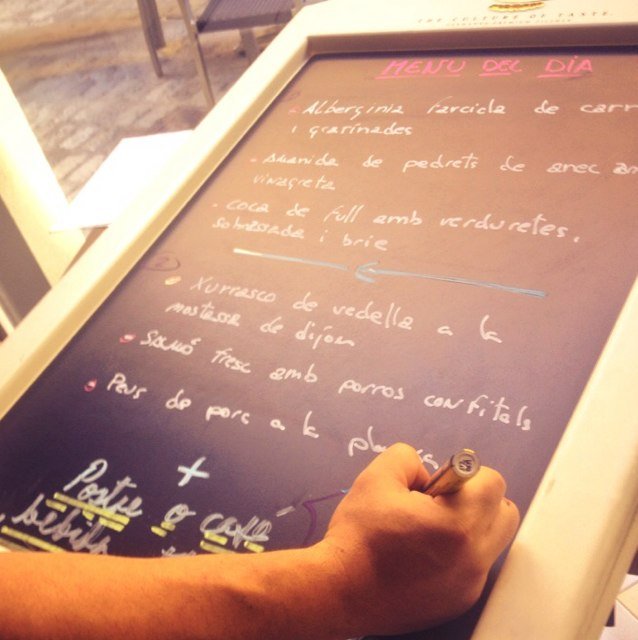 THE CULTURE OF TASTE
MENU DEL DIA
- Alberginia farcida de carn
i gratinades
- Amanida de pedrets de anec am
vinagreta
- coca de full amb verduretes,
sobrassada i brie
2
Xurrasco de vedella a la
mostassa de dijon
- Salmó fresc amb porros confitats
- Peus de porc a la planxa
+
Postre o café
bebida